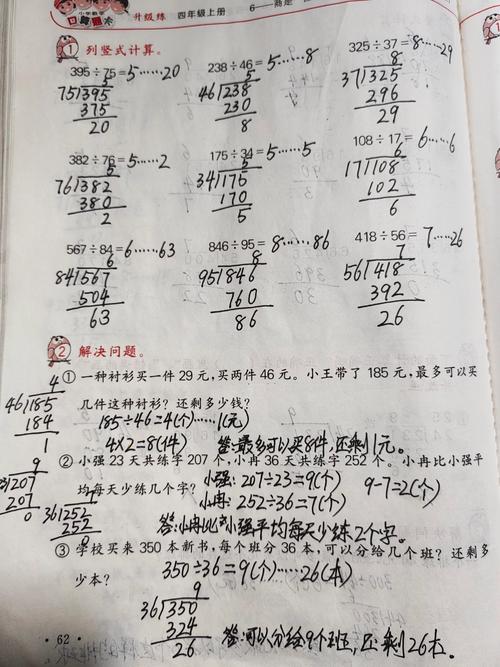 小学数学
升级练 四年级上册 6——商是
1 列竖式计算。
395÷75=5……20 238÷46=5……8 325÷37=8……29
5 5 8
75)395 46)238 37)325
375 230 296
20 8 29
382÷76=5……2 175÷34=5……5 108÷17=6……6
5 5 6
76)382 34)175 17)108
380 170 102
2 5 6
567÷84=6……63 846÷95=8……86 418÷56=7……26
6 8 7
84)567 95)846 56)418
504 760 392
63 86 26
2 解决问题。
① 一种衬衫买一件 29 元,买两件 46 元。小王带了 185 元,最多可以买
几件这种衬衫?还剩多少钱?
4
46)185
184
1
185÷46=4(个)……1(元)
4×2=8(件) 答:最多可以买8件,还剩1元。
② 小强 23 天共练字 207 个,小冉 36 天共练字 252 个。小冉比小强平
均每天少练几个字?
小强:207÷23=9(个)
小冉:252÷36=7(个) 9-7=2(个)
9
207
207
0
7
36)252
252
0
答:小冉比小强平均每天少练2个字。
③ 学校买来 350 本新书,每个班分 36 本,可以分给几个班?还剩多
少本?
350÷36=9(个)……26(本)
9
36)350
324
26
答:可以分给9个班,还剩26本。
· 62 ·